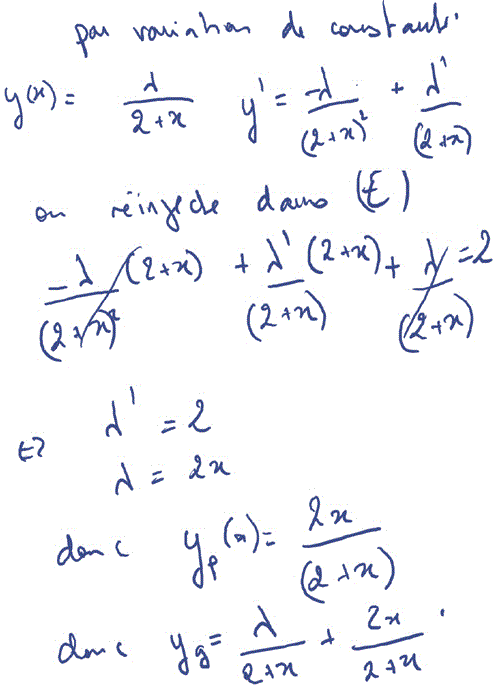 par variation de constante.
y(x) = λ/(2+x)   y' = -λ/(2+x)² + λ'/(2+x)
on réinjecte dans (E)
-λ/(2+x)² (2+x) + λ'(2+x)/(2+x) + λ/(2+x) = 2
λ' = 2
λ = 2x
donc yp(x) = 2x/(2+x)
donc yg = λ/(2+x) + 2x/(2+x).